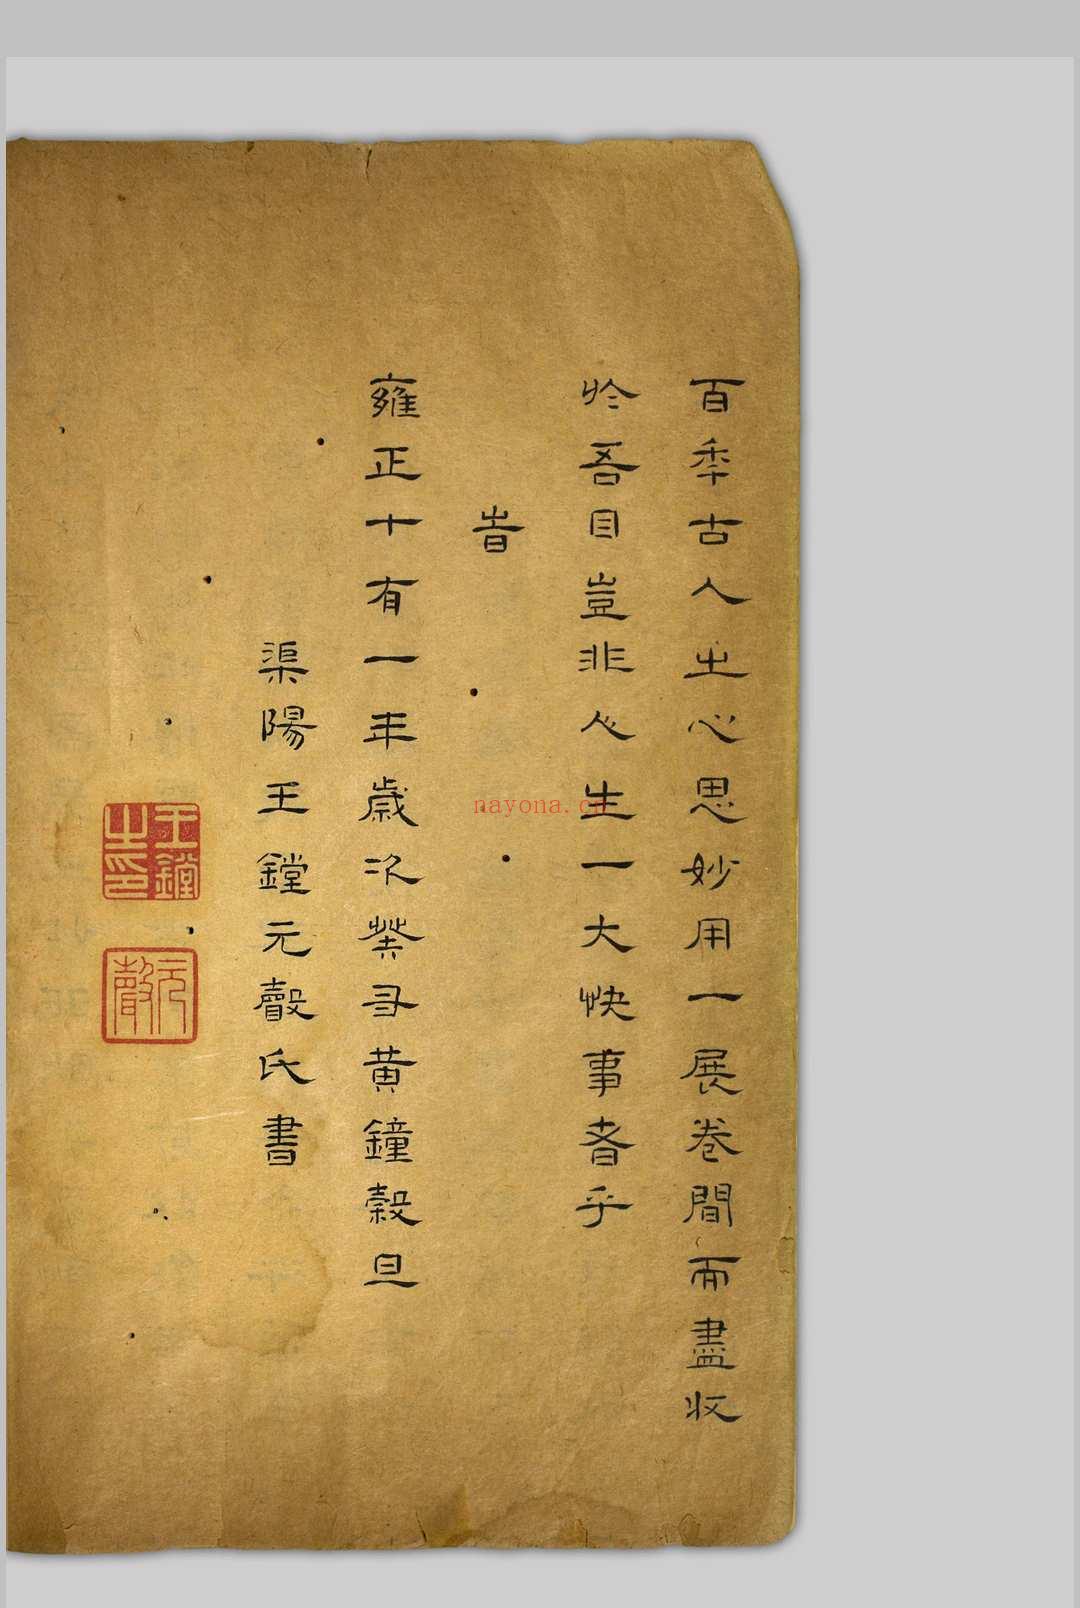 百秊古人之心思妙用一展卷間而盡收
於吾目豈非心生一大快事者乎
旹
雍正十有一年歲次癸丑黃鐘穀旦
渠陽王鏜元聲氏書
王鏜之印
元聲
nayona.cn